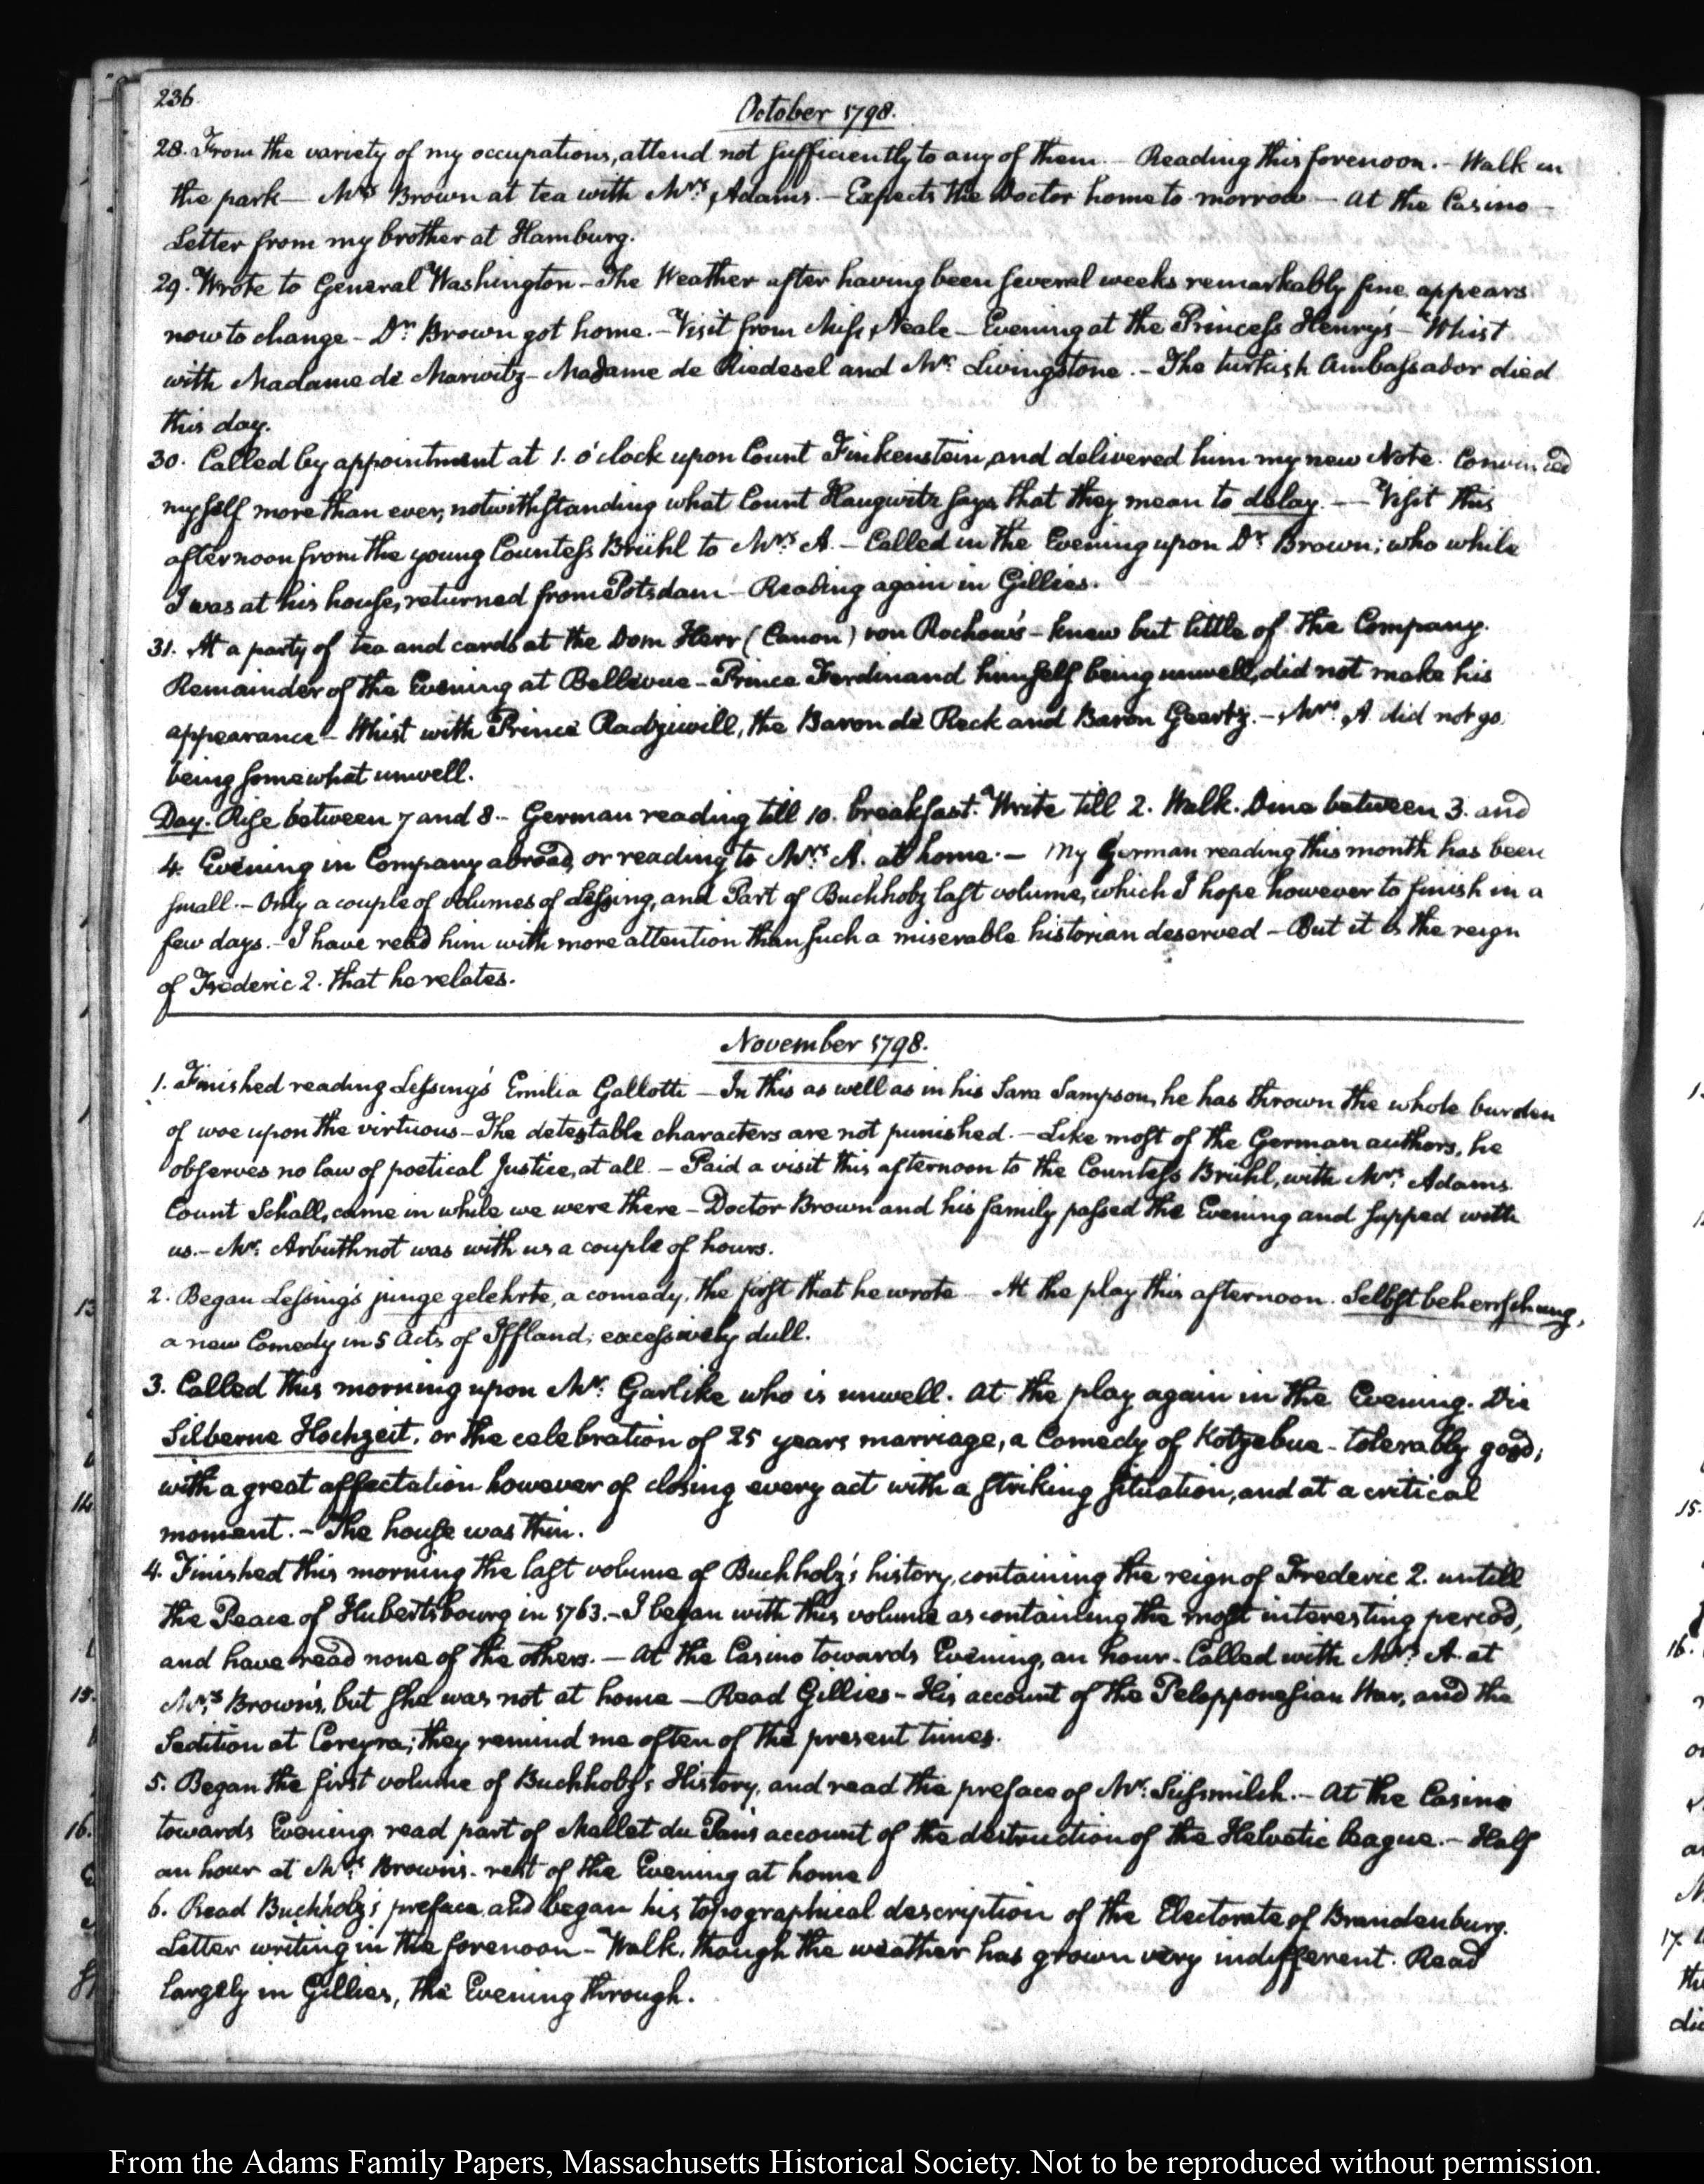 236.
October 1798.
28. From the variety of my occupations, attend not sufficiently to any of them. – Reading this forenoon. – Walk in
the park – Mrs Brown at tea with Mrs: Adams. – Expects the Doctor home to-morrow – At the Casino –
Letter from my brother at Hamburg.
29. Wrote to General Washington – The Weather after having been several weeks remarkably fine, appears
now to change – Dr: Brown got home. – Visit from Miss Neale – Evening at the Princess Henry's – Whist
with Madame de Marwitz – Madame de Riedesel and Mr: Livingstone. – The turkish Ambassador died
this day.
30. Called by appointment at 1. o'clock upon Count Finkenstein, and delivered him my new Note. Convinced
myself more than ever, notwithstanding what Count Haugwitz says, that they mean to delay. – Visit this
afternoon from the young Countess Brühl to Mrs: A. – Called in the Evening upon Dr: Brown; who while
I was at his house, returned from Potsdam – Reading again in Gillies.
31. At a party of tea and cards at the Dom Herr (Canon) von Rochow's – knew but little of the Company.
Remainder of the Evening at Bellevue – Prince Ferdinand himself being unwell, did not make his
appearance – Whist with Prince Radziwill, the Baron de Reck and Baron Geertz. – Mrs: A did not go
being somewhat unwell.
Day. Rise between 7 and 8 – German reading till 10. breakfast. Write till 2. Walk. Dine between 3. and
4. Evening in Company abroad, or reading to Mrs: A. at home. – My German reading this month has been
small. – Only a couple of volumes of Lessing, and Part of Buchholz last volume, which I hope however to finish in a
few days. – I have read him with more attention than such a miserable historian deserved – But it is the reign
of Frederic 2. that he relates.
November 1798.
1. Finished reading Lessing's Emilia Gallotti – In this as well as in his Sara Sampson, he has thrown the whole burden
of woe upon the virtuous – The detestable characters are not punished. – Like most of the German authors, he
observes no law of poetical Justice, at all – Paid a visit this afternoon to the Countess Brühl, with Mrs: Adams
Count Schall, came in while we were there – Doctor Brown and his family passed the Evening and supped with
us. – Mr: Arbuthnot was with us a couple of hours.
2. Began Lessing's junge gelehrte, a comedy, the first that he wrote – At the play this afternoon. Selbstbeherrschung,
a new Comedy in 5 Acts of Iffland; excessively dull.
3. Called this morning upon Mr: Garlike who is unwell. At the play again in the Evening. Die
Silberne Hochzeit, or the celebration of 25 years marriage, a Comedy of Kotzebue – tolerably good;
with a great affectation however of closing every act with a striking situation, and at a critical
moment. – The house was thin.
4. Finished this morning the last volume of Buchholz's history, containing the reign of Frederic 2. untill
the Peace of Hubertsbourg in 1763. – I began with this volume as containing the most interesting period,
and have read none of the others. – At the Casino towards Evening, an hour – Called with Mrs: A. at
Mrs: Brown's, but she was not at home – Read Gillies – His account of the Pelopponesian War, and the
Sedition at Corcyra; they remind me often of the present times.
5. Began the first volume of Buchholz's History, and read the preface of Mr: Süssmilch. – At the Casino
towards Evening read part of Mallet du Pan's account of the destruction of the Helvetic league. – Half
an hour at Mrs: Brown's – rest of the Evening at home
6. Read Buchholz's preface and began his topographical description of the Electorate of Brandenburg.
Letter writing in the forenoon – Walk, though the weather has grown very indifferent. Read
largely in Gillies, the Evening through.
From the Adams Family Papers, Massachusetts Historical Society. Not to be reproduced without permission.